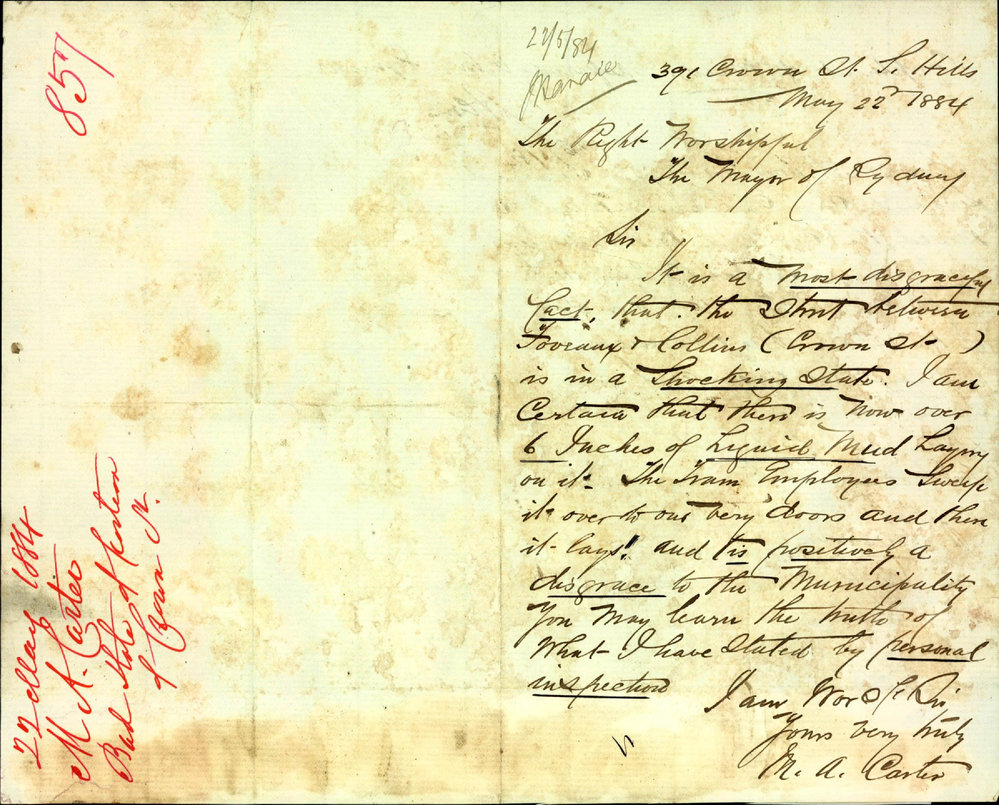 857
22 May 1884
M. A. Carter
Bad State of Portion
of Crown St.
22/5/84
391 Crown St. S. Hills
May 22d 1884
The Right Worshipful
The Mayor of Sydney
Sir
It is a most disgraceful
fact, that the Street between
Foveaux & Collins (Crown St)
is in a Shocking State. I am
Certain that there is now over
6 Inches of Liquid Mud Laying
on it. The Tram Employees Sweep
it over to our very doors and there
it lays! and tis positively a
disgrace to the Municipality
You May learn the truth of
What I have Stated by personal
inspection
I am Worsfl Sir
Yours very truly
M. A. Carter